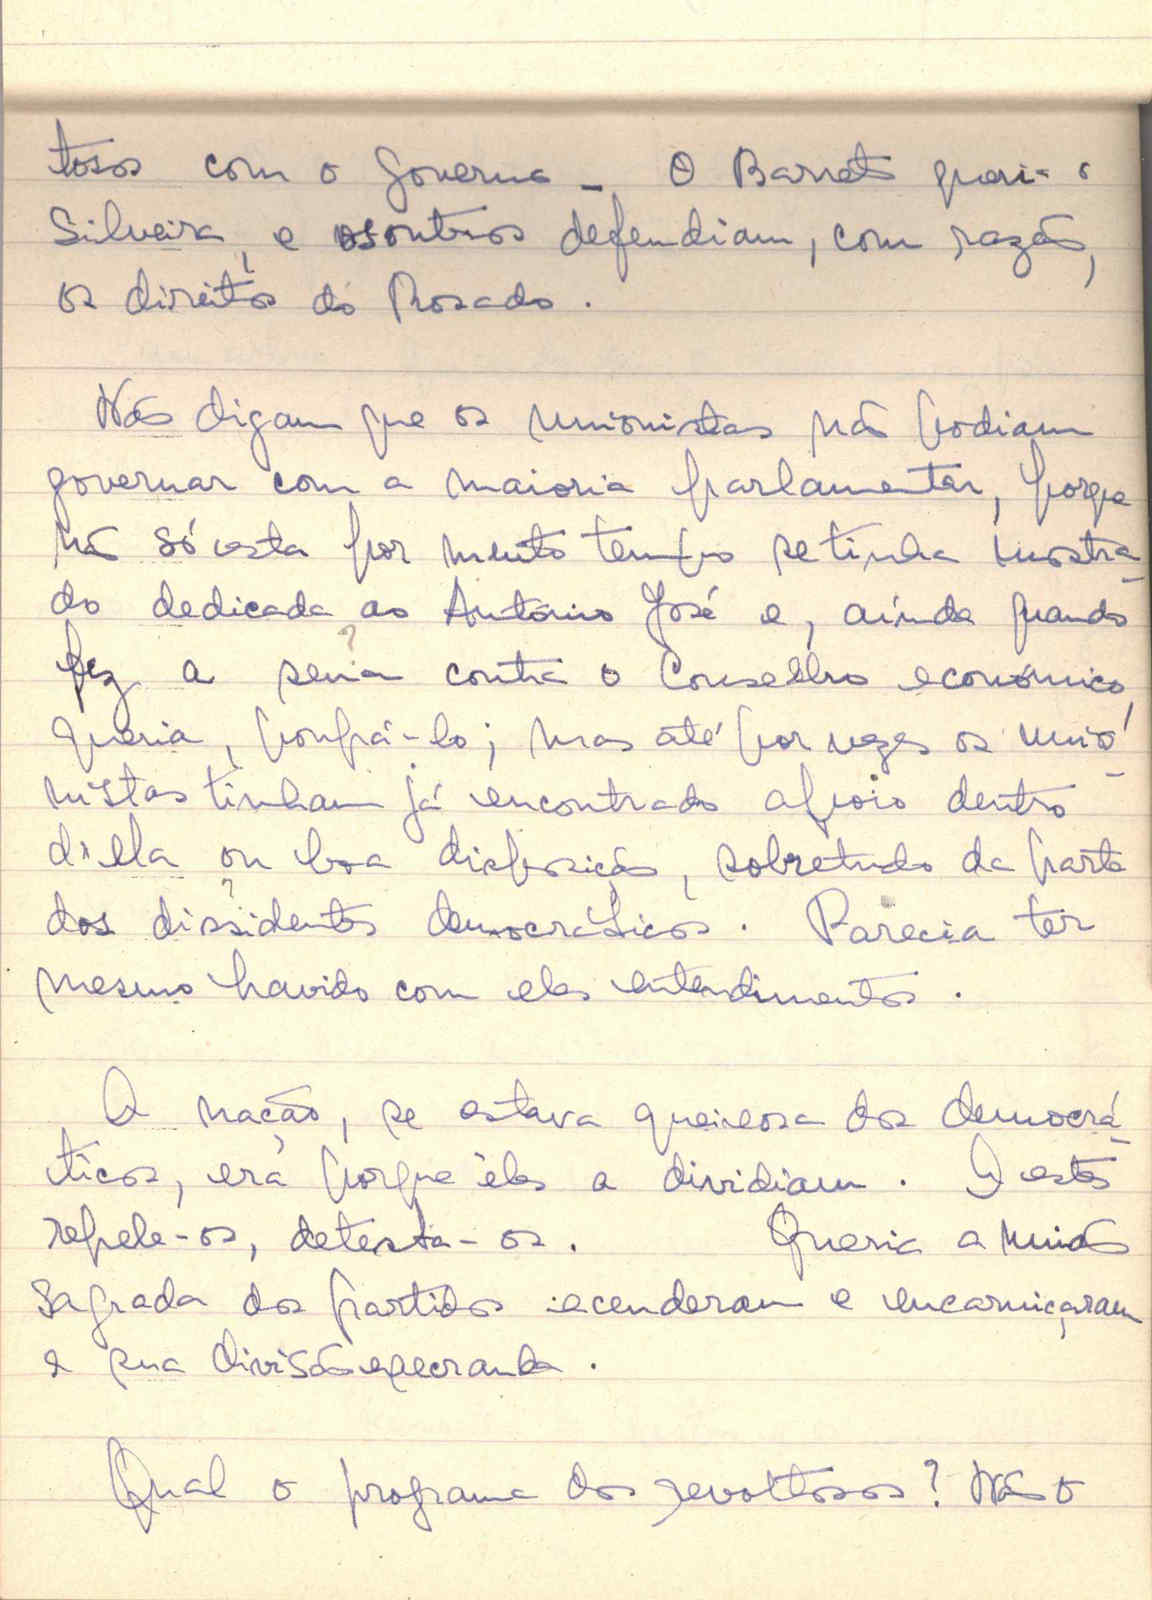 tosos com o Governo -. O Barreto queria o
Silveira, e os outros defendiam, com razão,
os direitos do Rosado.
Não digam que os unionistas não podiam
governar com a maioria parlamentar, porque
não só esta por muito tempo se tinha mostra-
do dedicada ao António José e, ainda quando
?
fez a contra o Conselho económico,
queria poupá-lo; mas até por vezes os unio-
nistas tinham já encontrado apoio dentro
d'ela ou boa disposição, sobretudo da parte
?
dos dissidentes democráticos. Parecia ter
mesmo havido com eles entendimentos.
A nação, se estava queixosa dos democrá-
ticos, era porque êles a dividiam. Q estes
repele-os, detesta-os. Queria a união
sagrada dos partidos acenderam e encarniçaram
a sua divisão execranda.
Qual o programa dos revoltosos? Não o